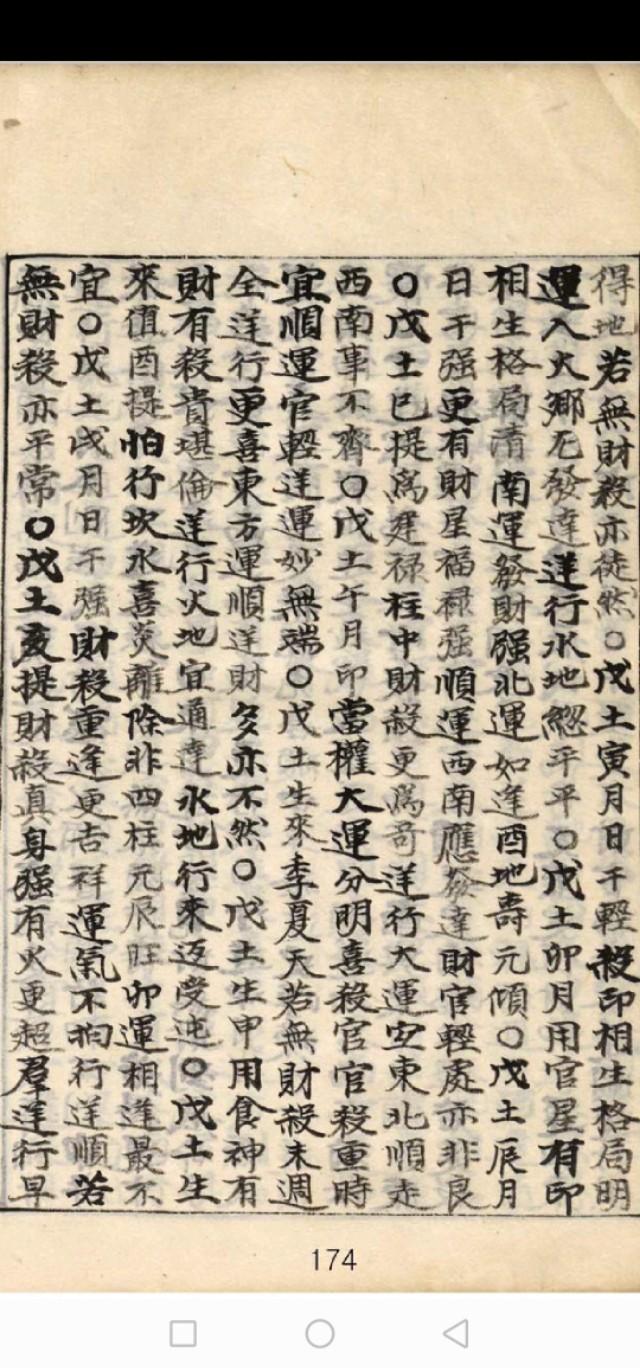 得地若無財殺亦徒然○戊土寅月日干輕殺印相生格局明
運入火鄉死發達逆行水地總平平○戊土卯月用官星有印
相生格局清南運發財强北運如逢酉地壽元傾○戊土辰月
日干强更有財星福祿强順運西南應發達財官輕處亦非良
○戊土巳提爲建禄柱中財殺更爲奇逆行大運宜東北順走
西南事不齊○戊土午月印當權大運分明喜殺官官殺重時
宜順運官輕逆運妙無端○戊土生來季夏天若無財殺未週
全逆行更喜東方運順逆財多亦不然○戊土生申用食神有
財有殺貴堪倫逆行火地宜通達水地行來迍受迍○戊土生
來值酉提怕行坎水喜炎離除非四柱元辰旺卯運相逢最不
宜○戊土戌月日干强財殺重逢更吉祥運氣不拘行逆順若
無財殺亦平常○戊土亥提財殺真身强有火更超羣逆行早
174